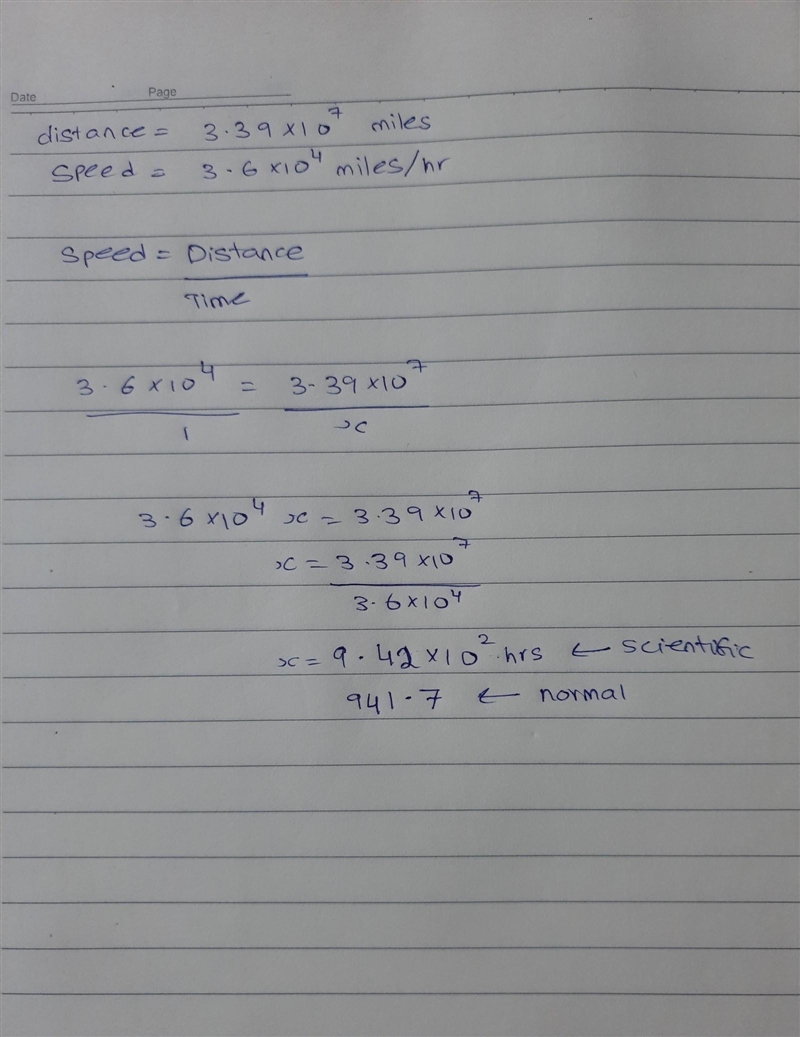 Date Page
distance = 3.39 × 10⁷ miles
Speed = 3.6 × 10⁴ miles/hr
Speed = Distance
Time
3.6 × 10⁴ = 3.39 × 10⁷
1 x
3.6 × 10⁴ x = 3.39 × 10⁷
x = 3.39 × 10⁷
3.6 × 10⁴
x = 9.42 × 10² hrs ← scientific
941.7 ← normal